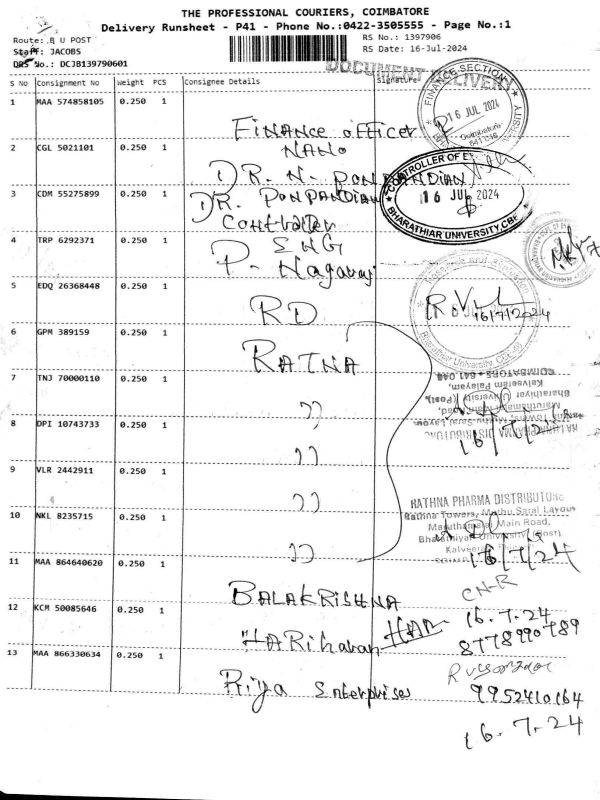 THE PROFESSIONAL COURIERS, COIMBATORE
Delivery Runsheet - P41 - Phone No.:0422-3505555 - Page No.:1
Route: B U POST
RS No.: 1397906
Staff: JACOBS
RS Date: 16-Jul-2024
DRS No.: DCJB139790601
DOCUMENT DELIVERY
S No Consignment No Weight PCS Consignee Details Signature
FINANCE SECTION
16 JUL 2024
Coimbatore
641 046
1 MAA 574858105 0.250 1
Finance officer
2 CGL 5021101 0.250 1
NANO
DR. N. PONPANDIAN
CONTROLLER OF E
16 JUL 2024
BHARATHIAR UNIVERSITY, CBE
3 CDM 55275899 0.250 1
DR. PONPANDIAN
Controller
4 TRP 6292371 0.250 1
SNG
P. Nagaraj
5 EDQ 26368448 0.250 1
RD
16/7/2024
Bharathiar University, CBE-46
6 GPM 389159 0.250 1
RATNA
7 TNJ 70000110 0.250 1
,,
COIMBATORE - 641 046
Kalveeram Palayam,
Bharathiyar University (Post),
Maruthamalai Main Road,
Rathna Towers, Muthu Saral Layout
RATHNA PHARMA DISTRIBUTORS
16/7/24
8 DPI 10743733 0.250 1
,,
9 VLR 2442911 0.250 1
,,
10 NKL 8235715 0.250 1
,,
RATHNA PHARMA DISTRIBUTORS
Rathna Towers, Muthu Saral Layout
Maruthamalai Main Road,
Bharathiyar University (Post)
16/7/24
11 MAA 864640620 0.250 1
BALAKRISHNA
12 KCM 50085646 0.250 1
HARiharan
16.7.24
8778990789
13 MAA 866330634 0.250 1
Riya Enterprises
9952410164
16.7.24